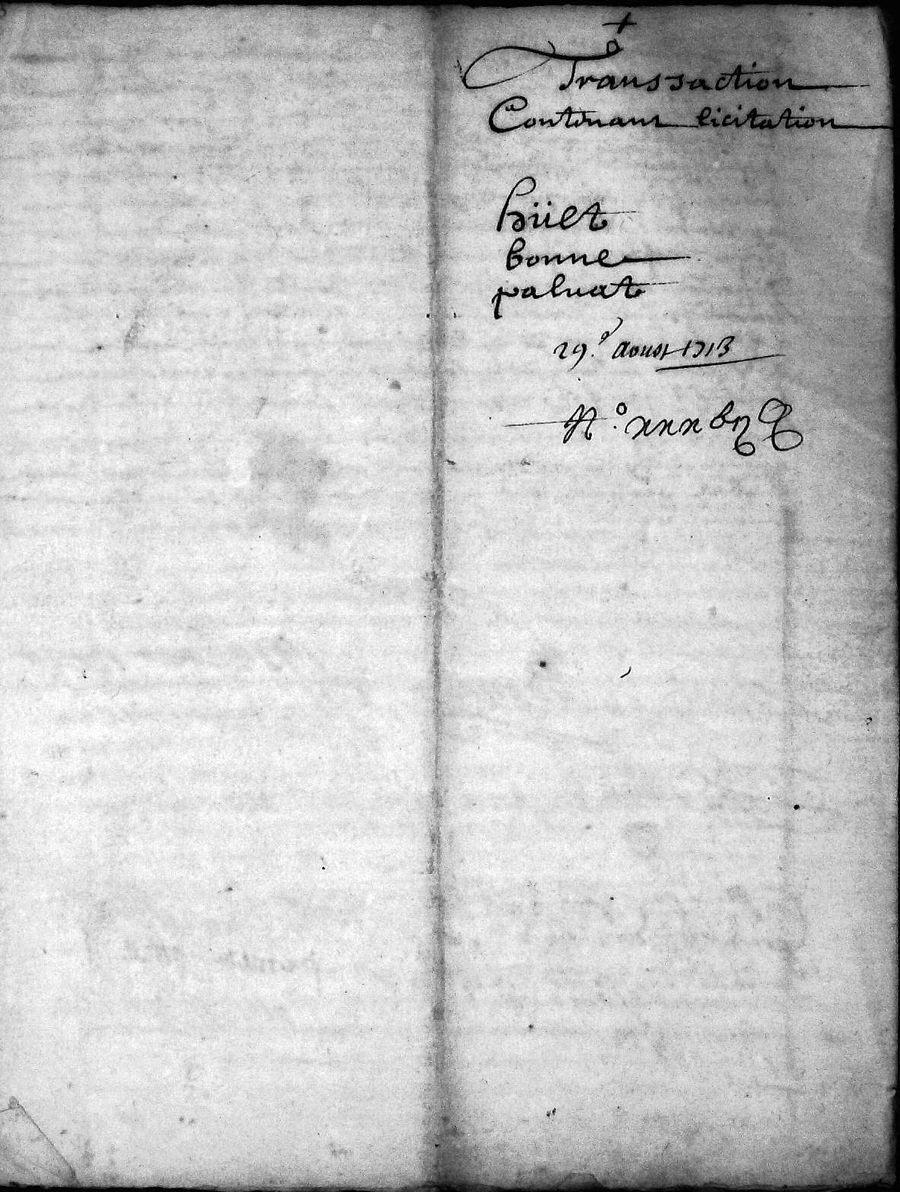 Transsaction
Contenant licitation
hüet
bonne
paluat
29.e aoust 1713
N.o xxx